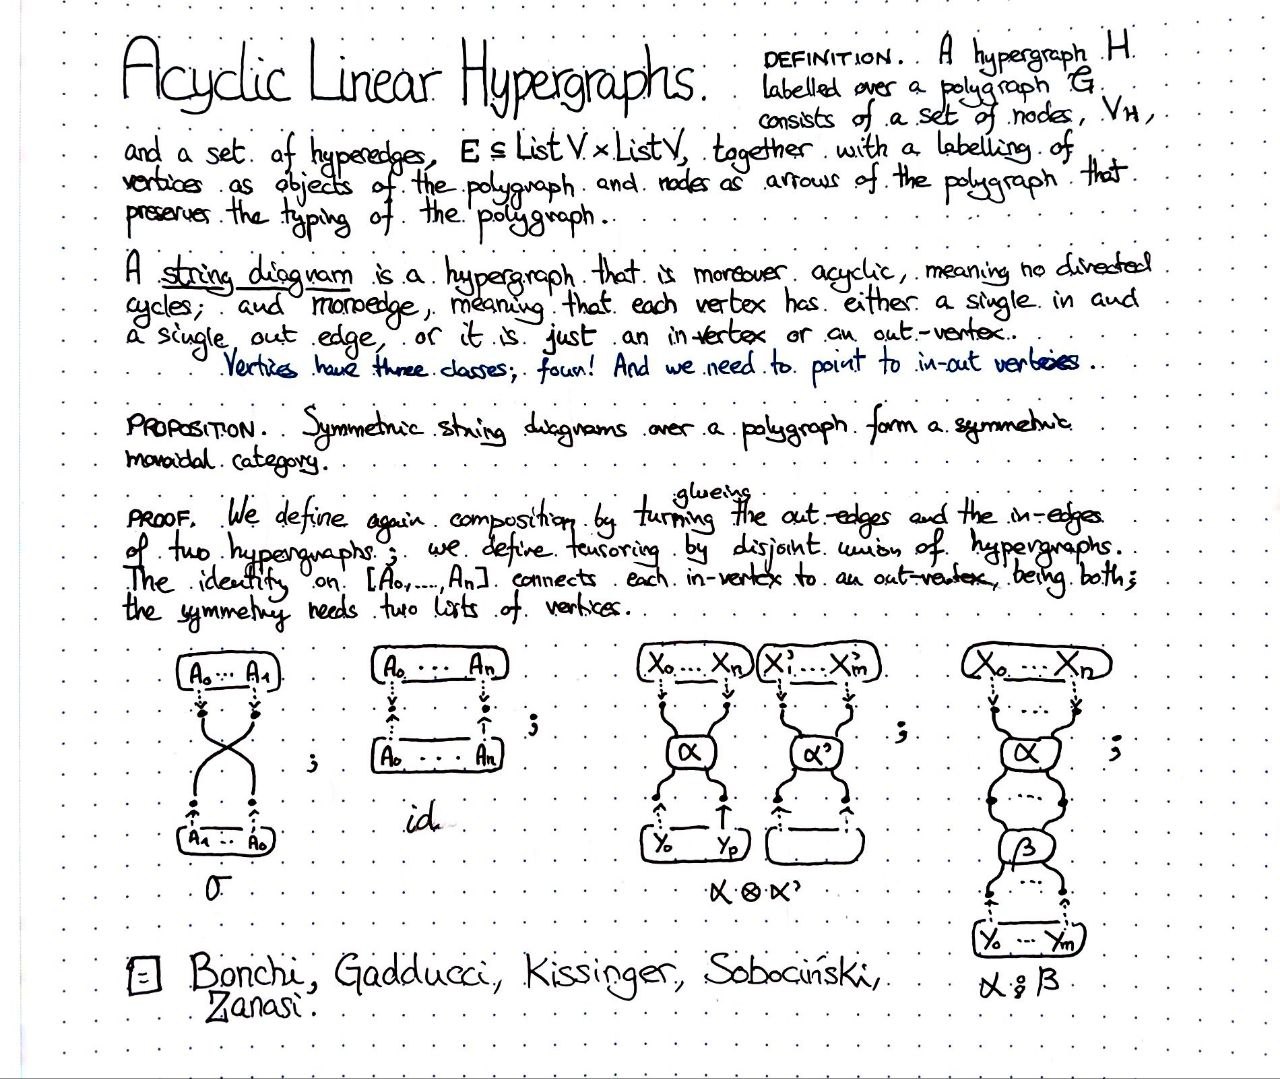 Acyclic Linear Hypergraphs.
DEFINITION. A hypergraph H
labelled over a polygraph G
consists of a set of nodes, V_H,
and a set of hyperedges, E ⊆ List V × List V, together with a labelling of
vertices as objects of the polygraph and nodes as arrows of the polygraph that
preserves the typing of the polygraph.
A string diagram is a hypergraph that is moreover acyclic, meaning no directed
cycles; and monoedge, meaning that each vertex has either a single in and
a single out edge, or it is just an in-vertex or an out-vertex.
Vertices have three classes; four! And we need to point to in-out vertices.
PROPOSITION. Symmetric string diagrams over a polygraph form a symmetric
monoidal category.
glueing
PROOF. We define again composition by turning the out-edges and the in-edges
of two hypergraphs; we define tensoring by disjoint union of hypergraphs.
The identity on [A₀,...,Aₙ] connects each in-vertex to an out-vertex, being both;
the symmetry needs two lists of vertices.
A₀ ... A₁
A₀ ... Aₙ
X₀ ... Xₙ X'₁ ... X'ₘ
X₀ ... Xₙ
;
;
α α'
;
α
;
A₀ ... Aₙ
...
A₁ .. A₀
id
Y₀ Yₚ
β
...
σ
α ⊗ α'
Y₀ ... Yₘ
α ⨾ β
Bonchi, Gadducci, Kissinger, Sobociński,
Zanasi.